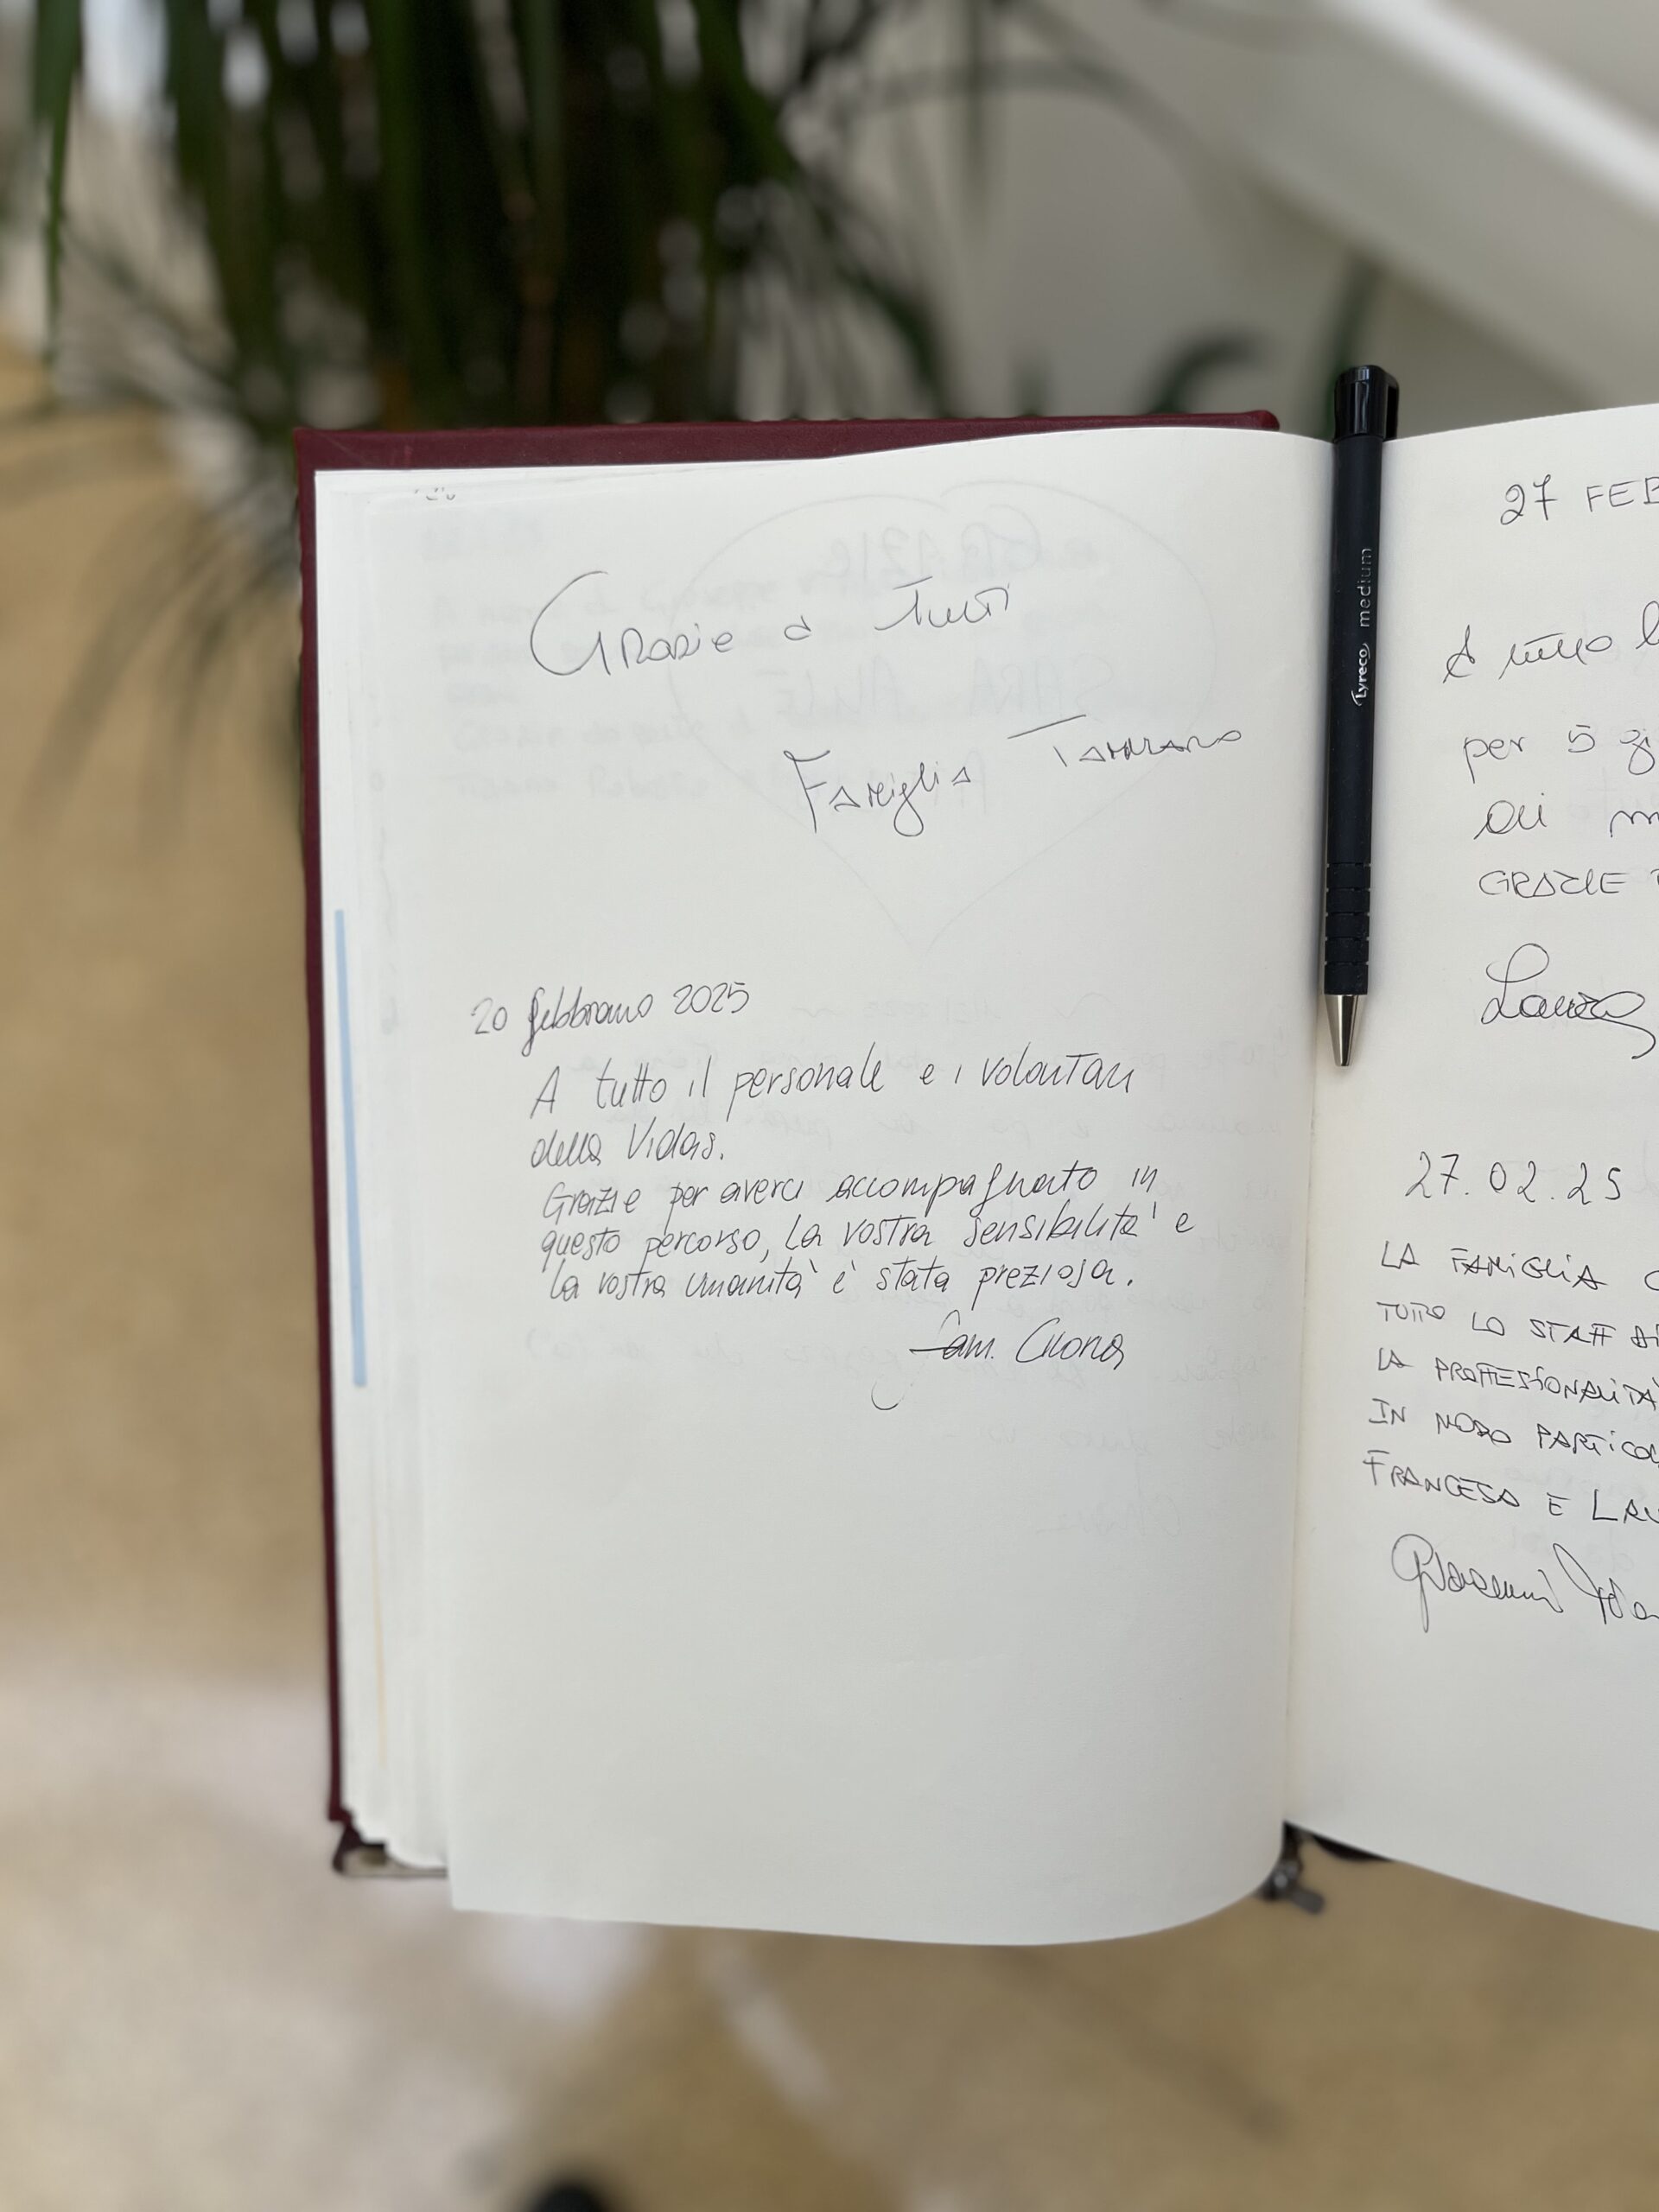 Grazie a tutti
Famiglia
20 febbraio 2025
A tutto il personale e i volontari
della Vidas.
Grazie per averci accompagnato in
questo percorso, la vostra sensibilità e
la vostra umanità è stata preziosa.
Fam. Cuona
Lyreco medium
27 FEB
A tutto l
per 5 g
ai m
GRAZIE
27.02.25
LA FAMIGLIA C
TUTTO LO STAFF
LA PROFFESSIONALITÀ
IN MODO PARTICOL
FRANCESO E LAU
Giovanni